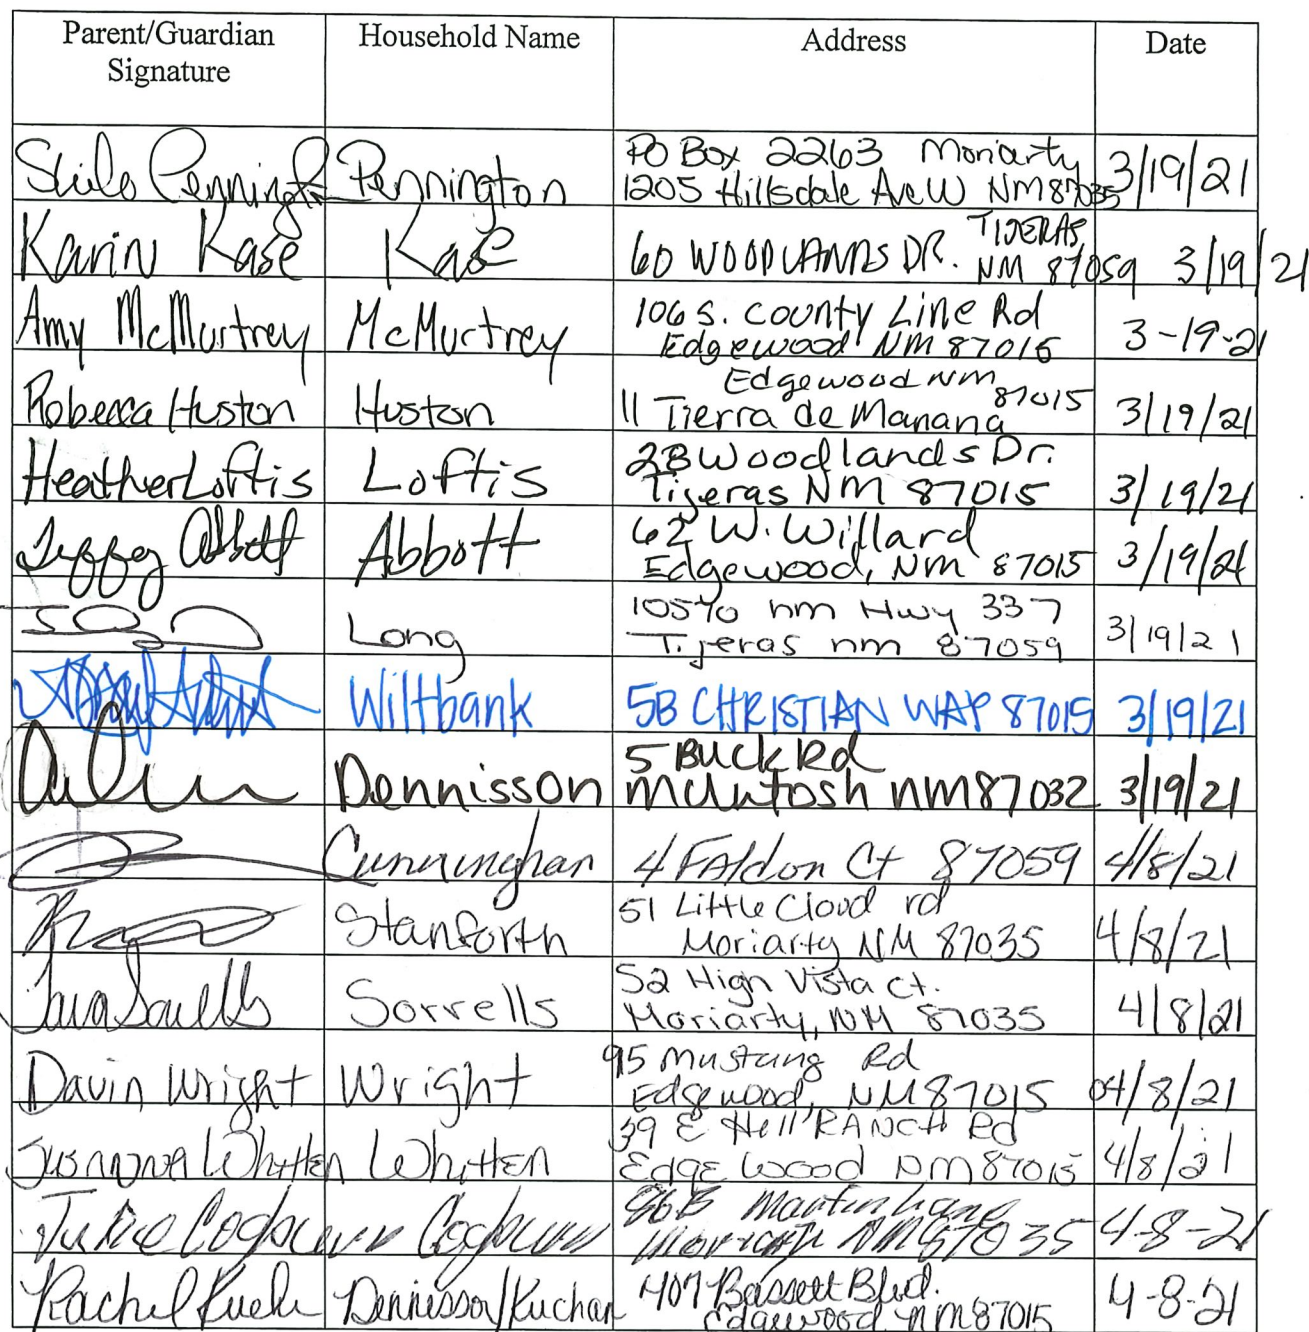 Parent/Guardian Signature Household Name Address Date
Pennington PO Box 2263 Moriarty
1205 Hillsdale Ave W NM 87035 3/19/21
Karin Kase Kase 60 WOODLANDS DR. TIJERAS,
NM 87059 3/19/21
Amy McMurtrey McMurtrey 106 S. County Line Rd
Edgewood NM 87015 3-19-21
Rebecca Huston Huston Edgewood NM 87015
11 Tierra de Manana 3/19/21
Heather Loftis Loftis 28 Woodlands Dr.
Tijeras NM 87015 3/19/21
Abbott Abbott 62 W. Willard
Edgewood, NM 87015 3/19/21
Long nm Hwy 337
Tijeras nm 87059 3/19/21
Wiltbank 5B CHRISTIAN WAY 87015 3/19/21
Dennisson 5 Buck Rd
McIntosh nm 87032 3/19/21
Cunningham 4 Ct 87059 4/8/21
Stanforth 51 Little Cloud rd
Moriarty NM 87035 4/8/21
Sorrells 52 High Vista ct.
Moriarty, NM 87035 4/8/21
Davin Wright Wright 95 Mustang Rd
Edgewood, NM 87015 04/8/21
Whitten Whitten 39 E Hill RANCH Rd
Edge wood NM 87015 4/8/21
Julie Cogburn Cogburn Martin Lane
Moriarty NM 87035 4-8-21
Rachel Dennisson/Kuchan 407 Bassett Blvd.
Edgewood nm 87015 4-8-21